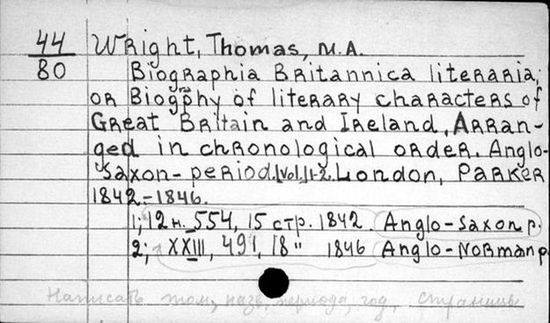 44
80
Wright, Thomas, M.A.
Biographia Britannica literaria;
or Biogphy of literary characters of
Great Britain and Ireland, Arran-
ged in chronological order. Anglo-
Saxon-period. [Vol.] 1-2. London, Parker
1842-1846.
1; 12 н. 554, 15 стр. 1842. Anglo-Saxon p.
2; XXIII, 491, 18 " 1846 Anglo-Norman p.
Написать том, назв. периода, год, страницы